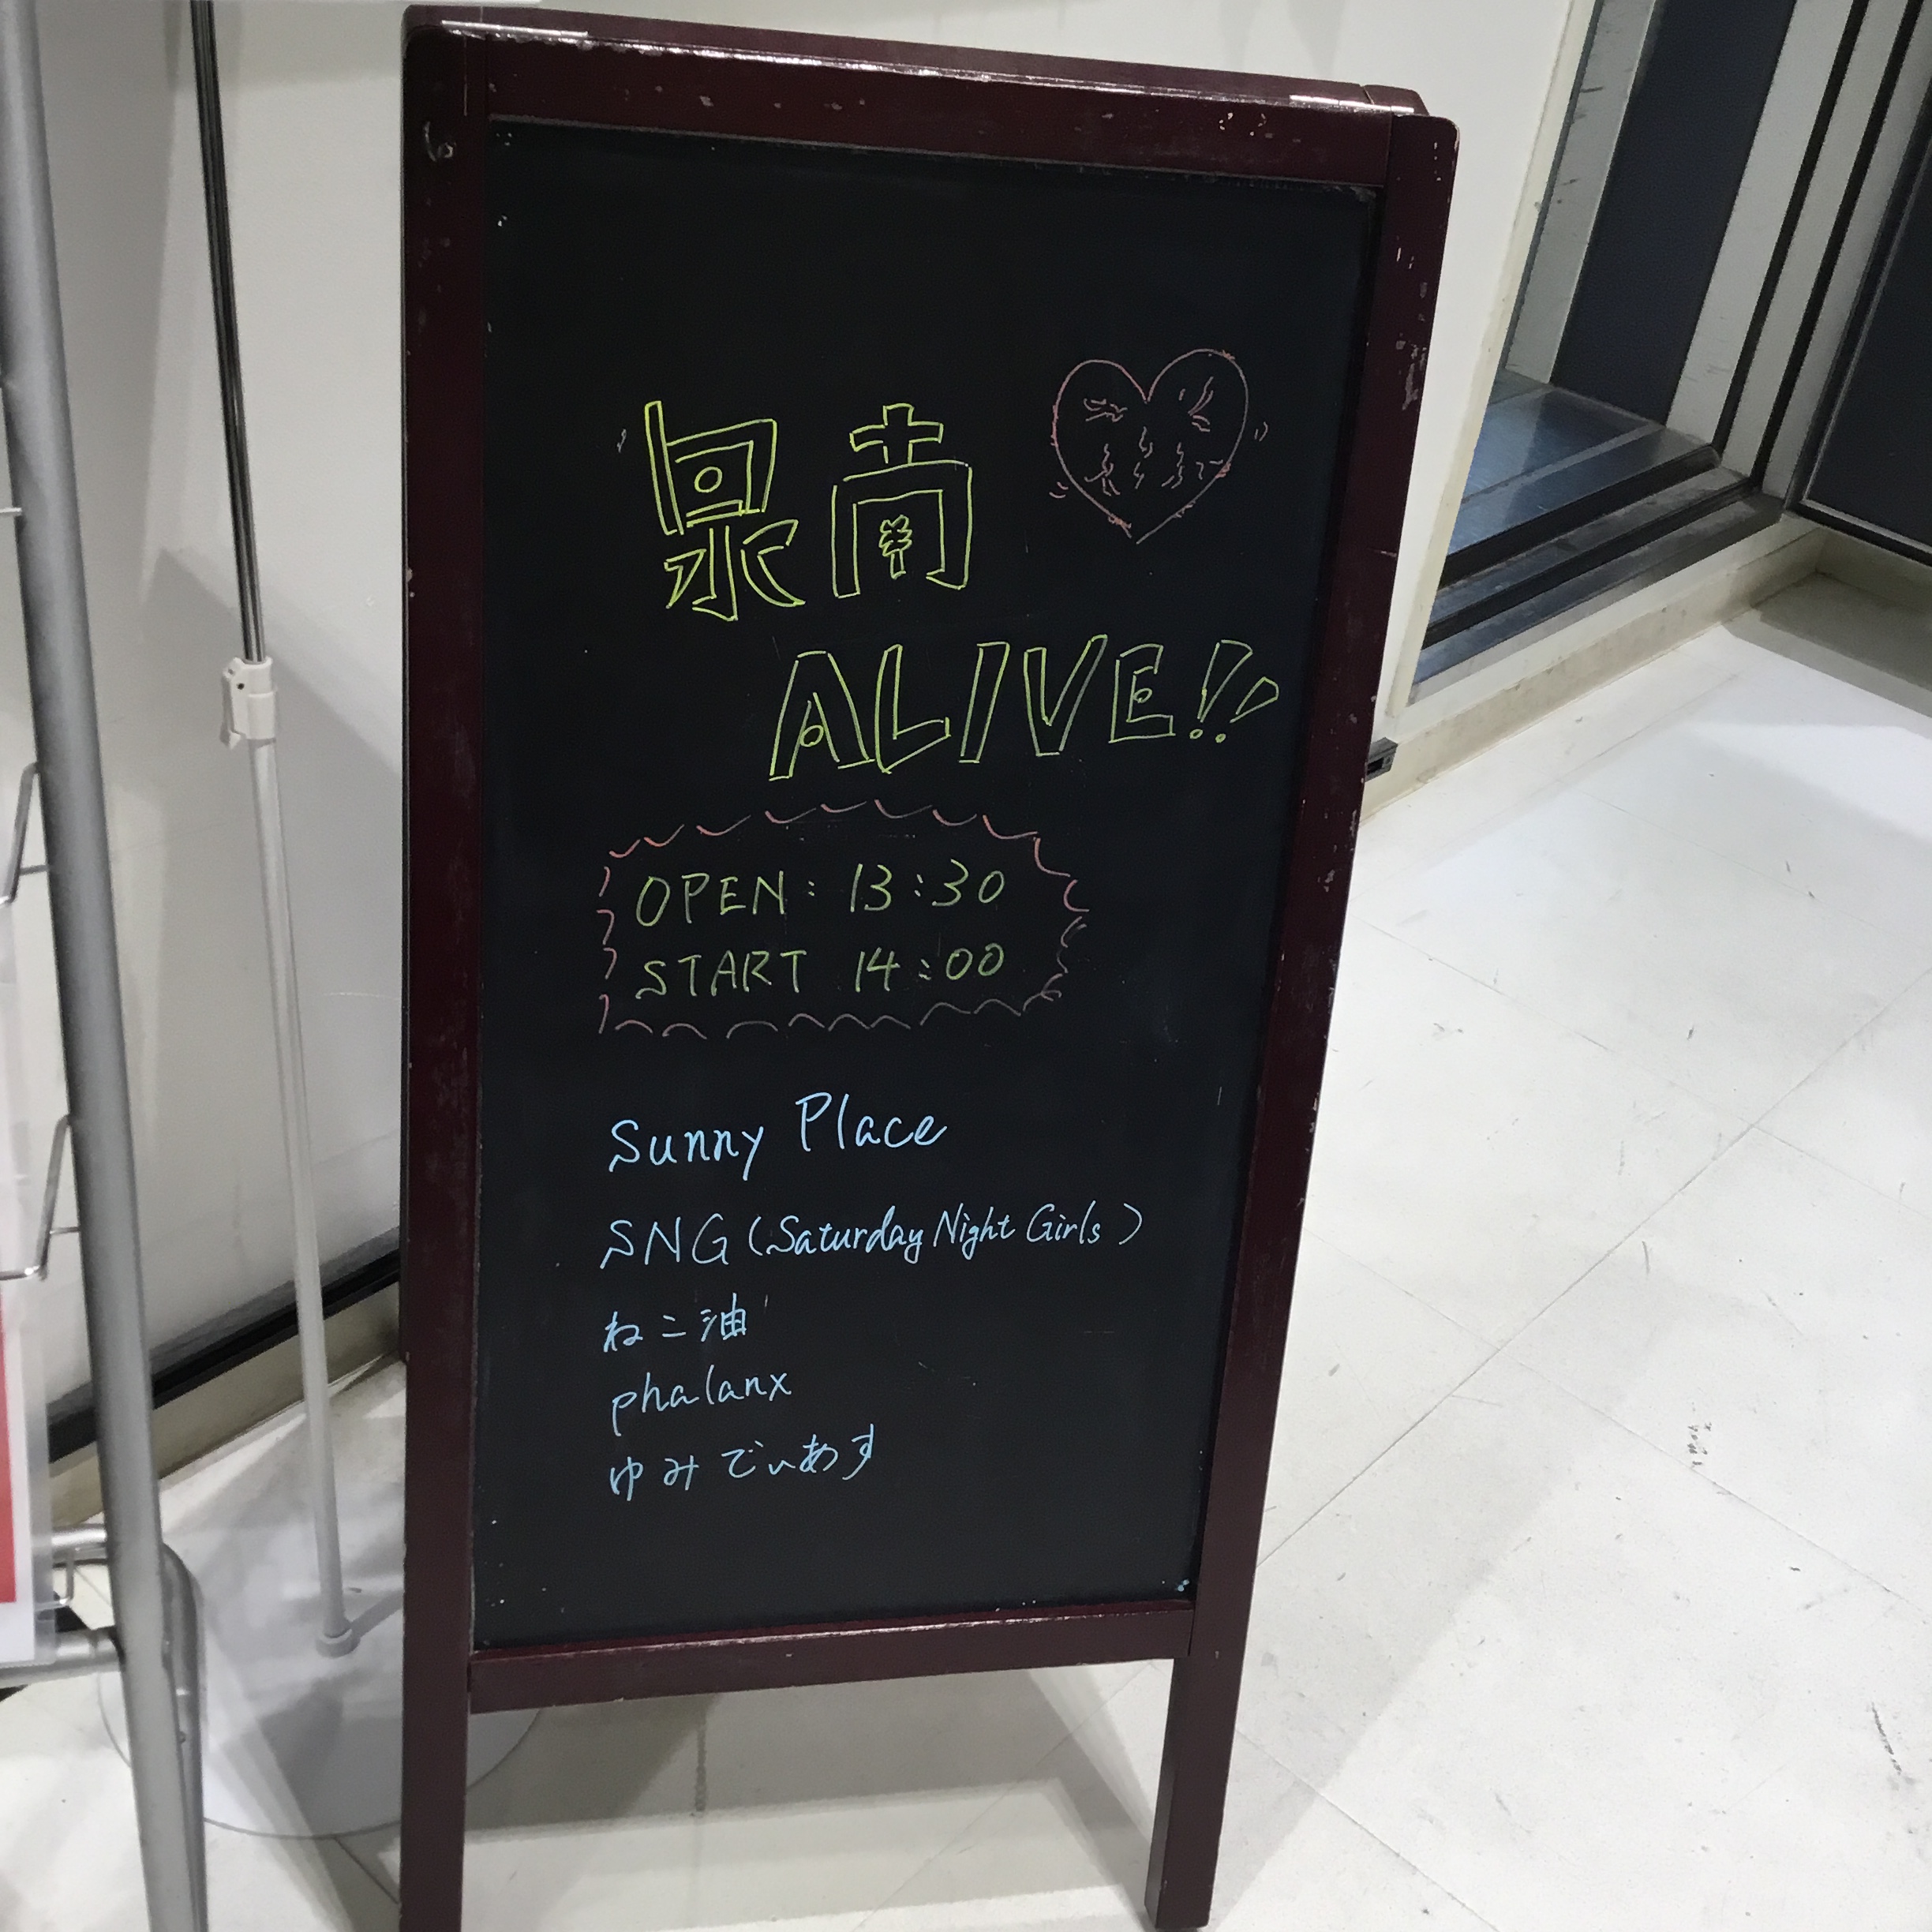 泉南
ALIVE!!
OPEN: 13:30
START 14:00
Sunny Place
SNG (Saturday Night Girls)
ねこ油
phalanx
ゆみでぃあす